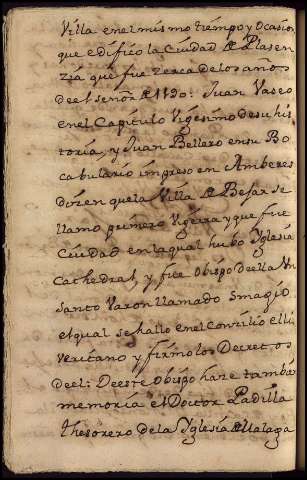 Villa en el mismo tiempo y Ocasion
que edifico la Ciudad de Plasen
zia que fue zerca de los años
de el señor de 1190: Juan Vaseo
en el Capitulo Vigesimo de su his
toria, y Juan Bellero en su Bo
cabulario impreso en Amberes
dizen que la Villa de Bejar se
llamo primero Vgerra y que fue
Ciudad en la qual hubo Yglesia
Cathedral, y fue Obispo de ella Vn
Santo Varon llamado Smagio
el qual se hallo en el Conzilio elli
veritano y firmo los Decretos
de el: De este Obispo haze tambien
memoria el Doctor Padilla
thesorero de la Yglesia de Malaga